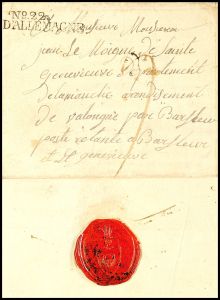 No. 22.
D'ALLEMAGNE
Monsieur Monsieur
jean Le Moigne de Sainte
genevieve Departement
delamanche arondisement
de valongne pare Barfleur
poste restante a Barfleur
et St genevieve